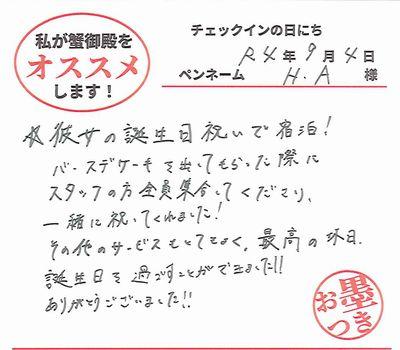 私が蟹御殿を
オススメ
します！
チェックインの日にち
R4年9月4日
ペンネーム H.A 様
★彼女の誕生日祝いで宿泊！
バースデケーキを出してもらった際に
スタッフの方全員集合してくださり、
一緒に祝ってくれました！
その他のサービスもとてもよく、最高の休日、
誕生日を過ごすことができました!!
ありがとうございました!!
お墨つき